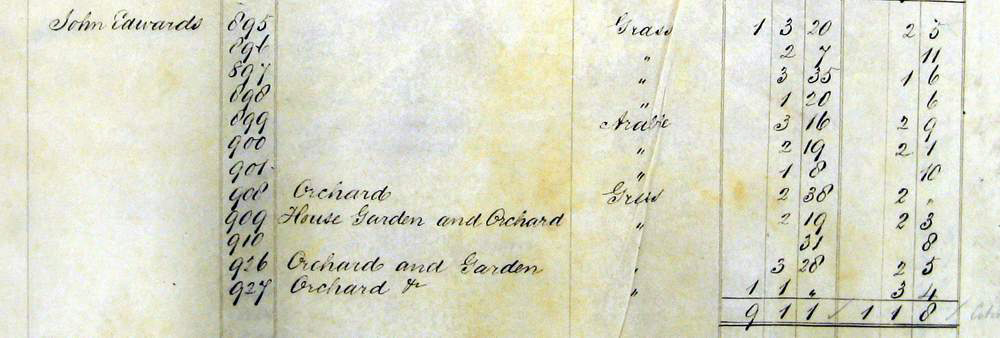 John Edwards 895 Grass 1 3 20 2 5
896 " 2 7 11
897 " 3 35 1 6
898 " 1 20 6
899 Arable 3 16 2 9
900 " 2 19 2 1
901 " 1 8 10
908 Orchard Grass 2 38 2 "
909 House Garden and Orchard " 2 19 2 3
910 31 8
926 Orchard and Garden " 3 28 2 5
927 Orchard & " 1 1 " 3 4
9 1 1 / 1 1 8 /